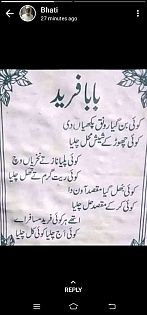 Bhati
27 minutes ago
بابا فرید
کوئی بن گیا رونق پکھیاں دی
کوئی چھوڑ کے شیش محل چلیا
کوئی پلیا ناز تے نخریاں وچ
کوئی ریت گرم تے تھل چلیا
کوئی بھل گیا مقصد آون دا
کوئی کر کے مقصد حل چلیا
اتھے ہر کوئی فرید مسافر اے
کوئی اج چلیا کوئی کل چلیا
REPLY